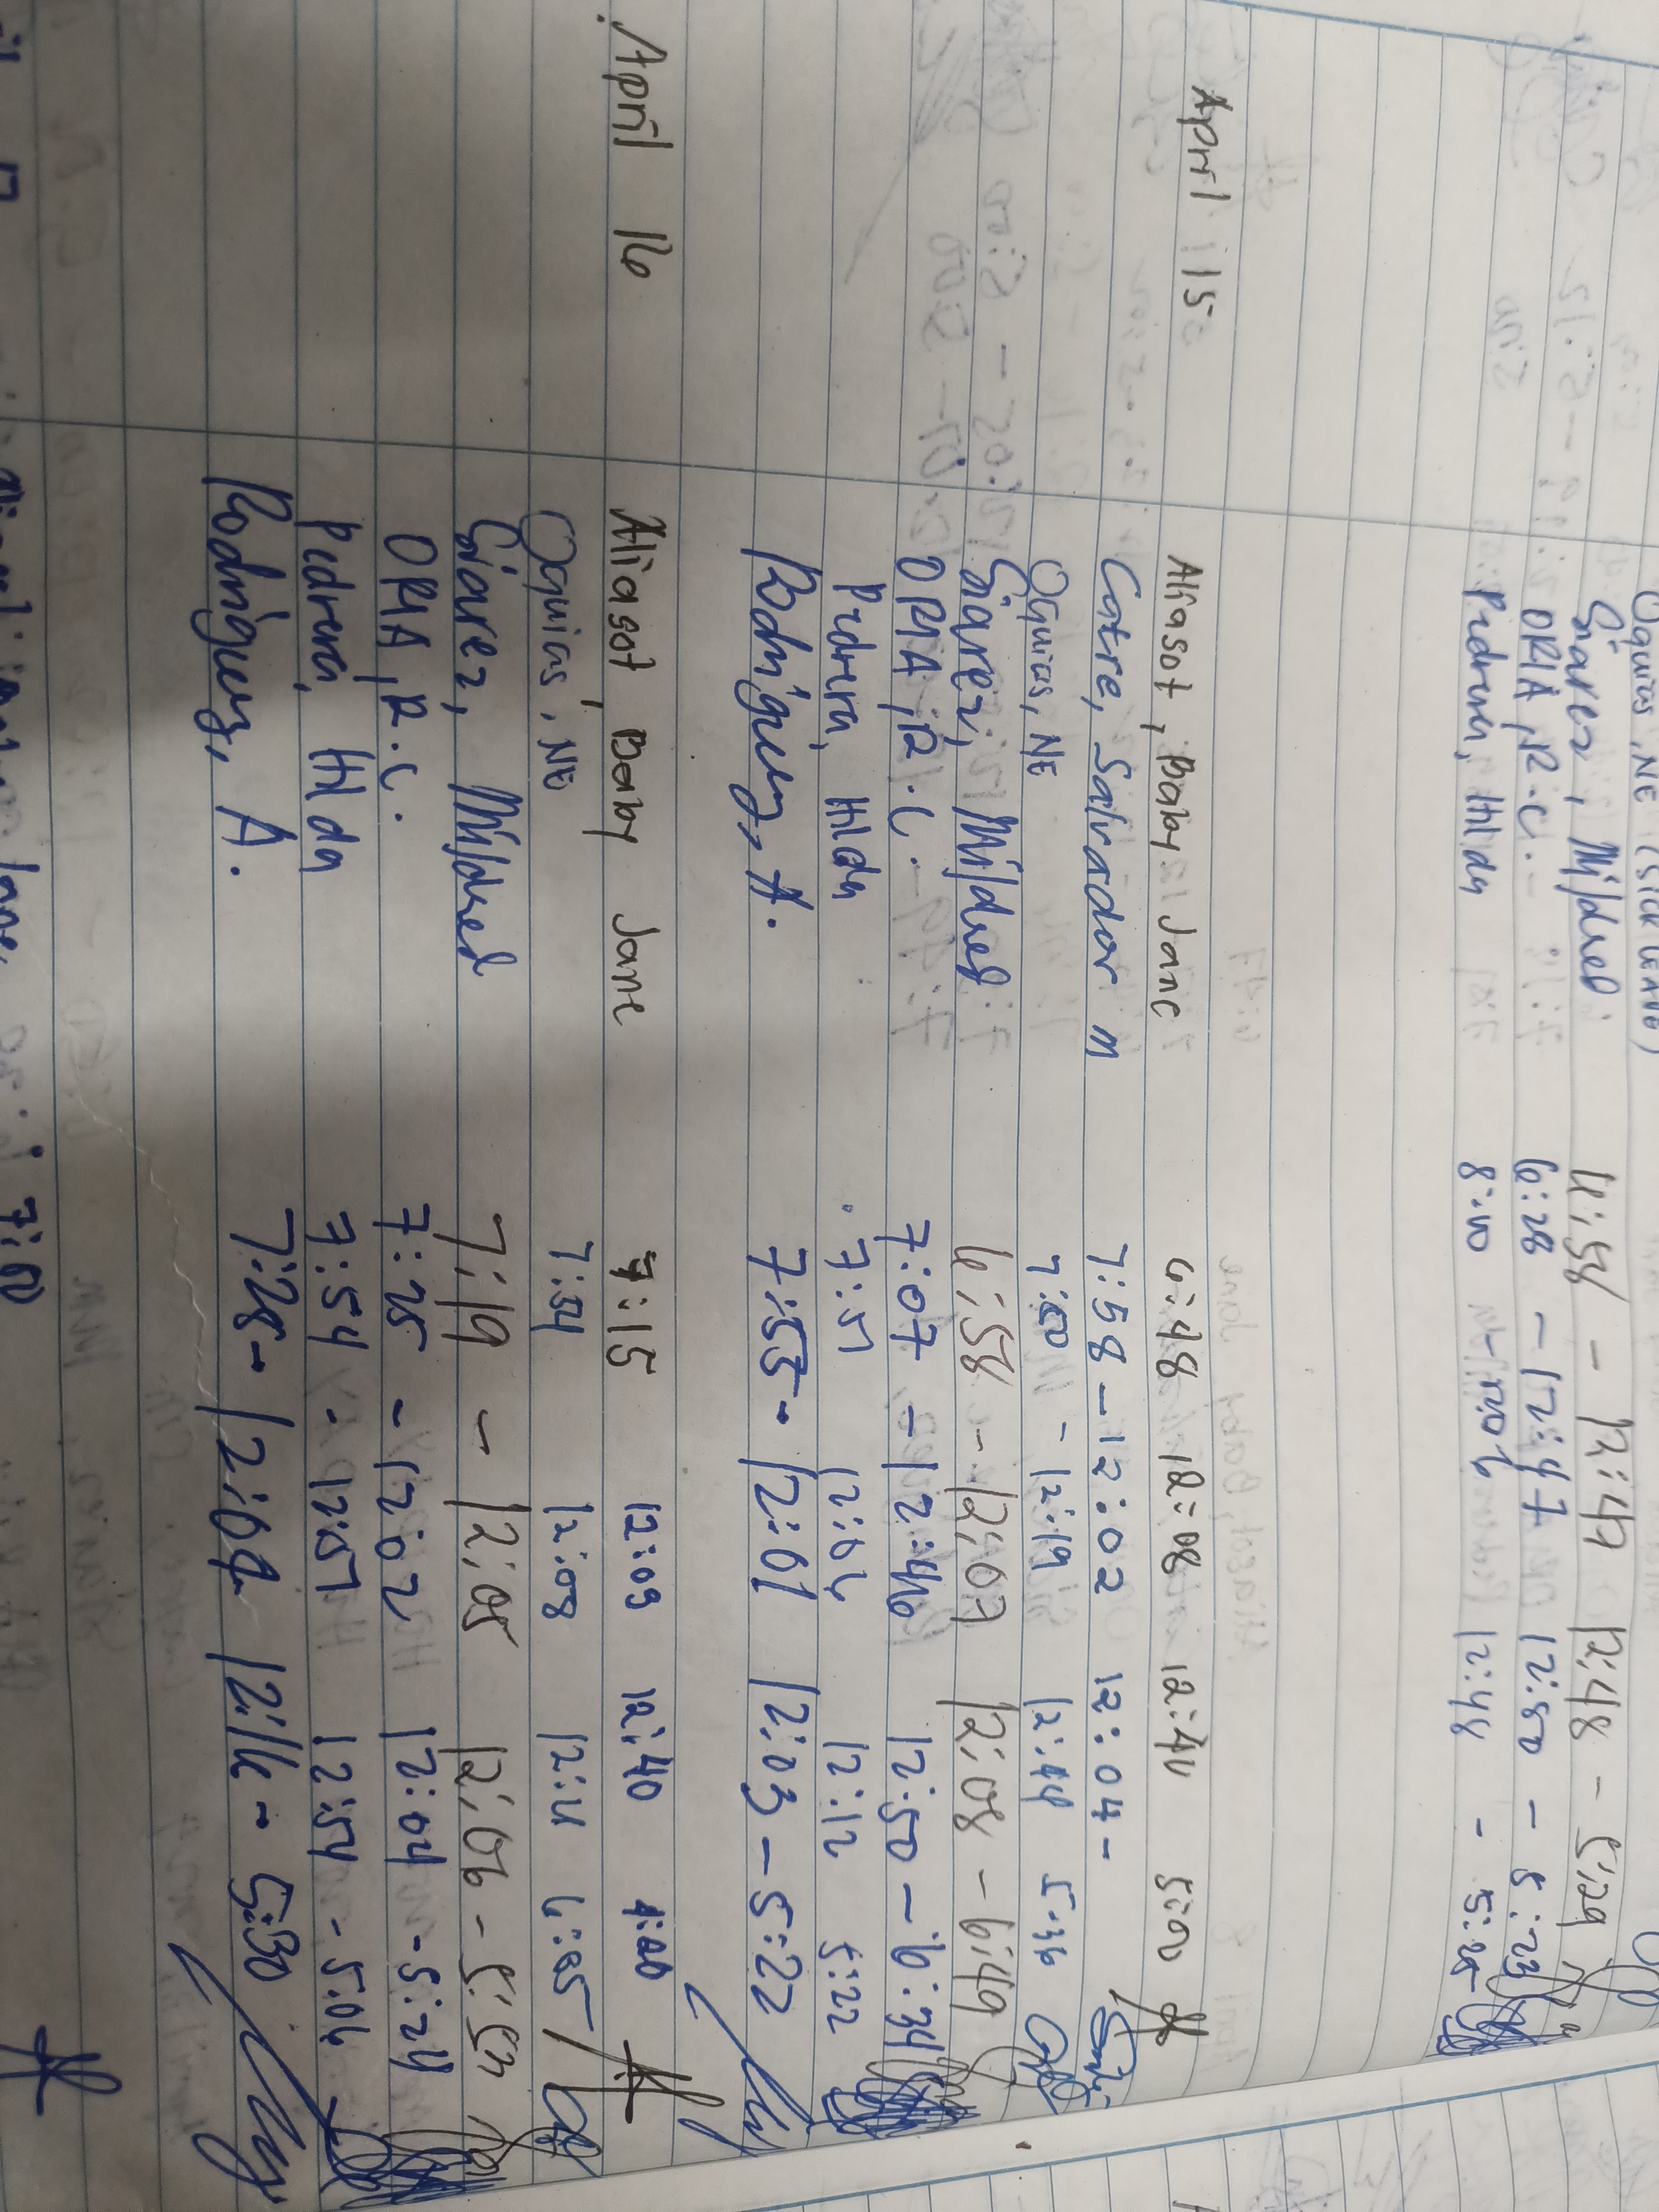 Oquias, NE (SICK LEAVE)
Siarez, Mildred 6:56 - 12:47 12:48 - 5:29
ORIA, R.C. 6:28 - 12:47 12:50 - 5:23
Pedrera, Hilda 8:10 - 12:06 12:48 - 5:25
April 15 Aliasot, Baby Jane 6:48 12:08 12:40 5:00
Catre, Salvador M 7:58 - 12:02 12:04 -
Oquias, NE 7:50 - 12:19 12:44 5:36
Siarez, Mildred 6:58 - 12:07 12:08 - 6:49
ORIA, R.C. 7:07 - 12:46 12:50 - 6:34
Pedrera, Hilda 7:51 12:04 12:12 5:22
Rodriguez, A. 7:55 - 12:01 12:03 - 5:22
April 16 Aliasot, Baby Jane 7:15 12:09 12:40 4:00
Oquias, NE 7:34 12:08 12:11 6:05
Siarez, Mildred 7:19 - 12:05 12:06 - 5:54
ORIA, R.C. 7:25 - 12:02 12:04 - 5:24
Pedrera, Hilda 7:54 - 12:51 12:54 - 5:06
Rodriguez, A. 7:28 - 12:09 12:16 - 5:30